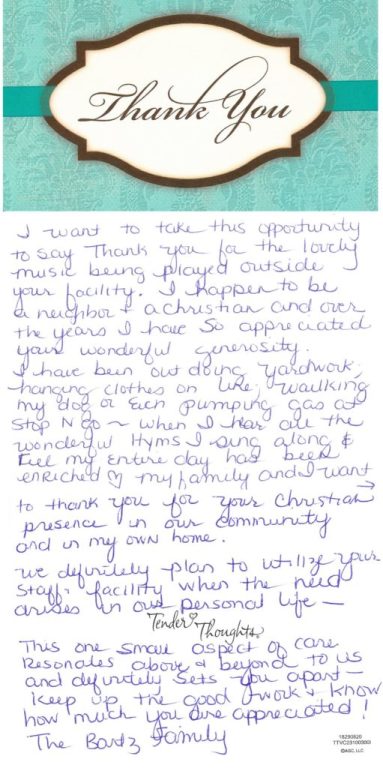 Thank You
I want to take this opportunity
to say Thank you for the lovely
music being played outside
your facility. I happen to be
a neighbor & a christian and over
the years I have so appreciated
your wonderful generosity.
I have been out doing yardwork,
hanging clothes on line, waulking
my dog or Even pumping gas at
Stop N go ~ when I hear all the
wonderful Hyms I sing along &
Feel my entire day has been
enriched ♡ my family and I want
to thank you for your Christian
presence in our community
and in my own home.
We definitely plan to utilize your
staff & facility when the need
arises in our personal life —
Tender Thoughts
This one small aspect of care
Resonates above & beyond to us
and definitely sets you apart —
Keep up the good work & know
how much you are appreciated!
The Bartz Family
18293820
©ASC, LLC